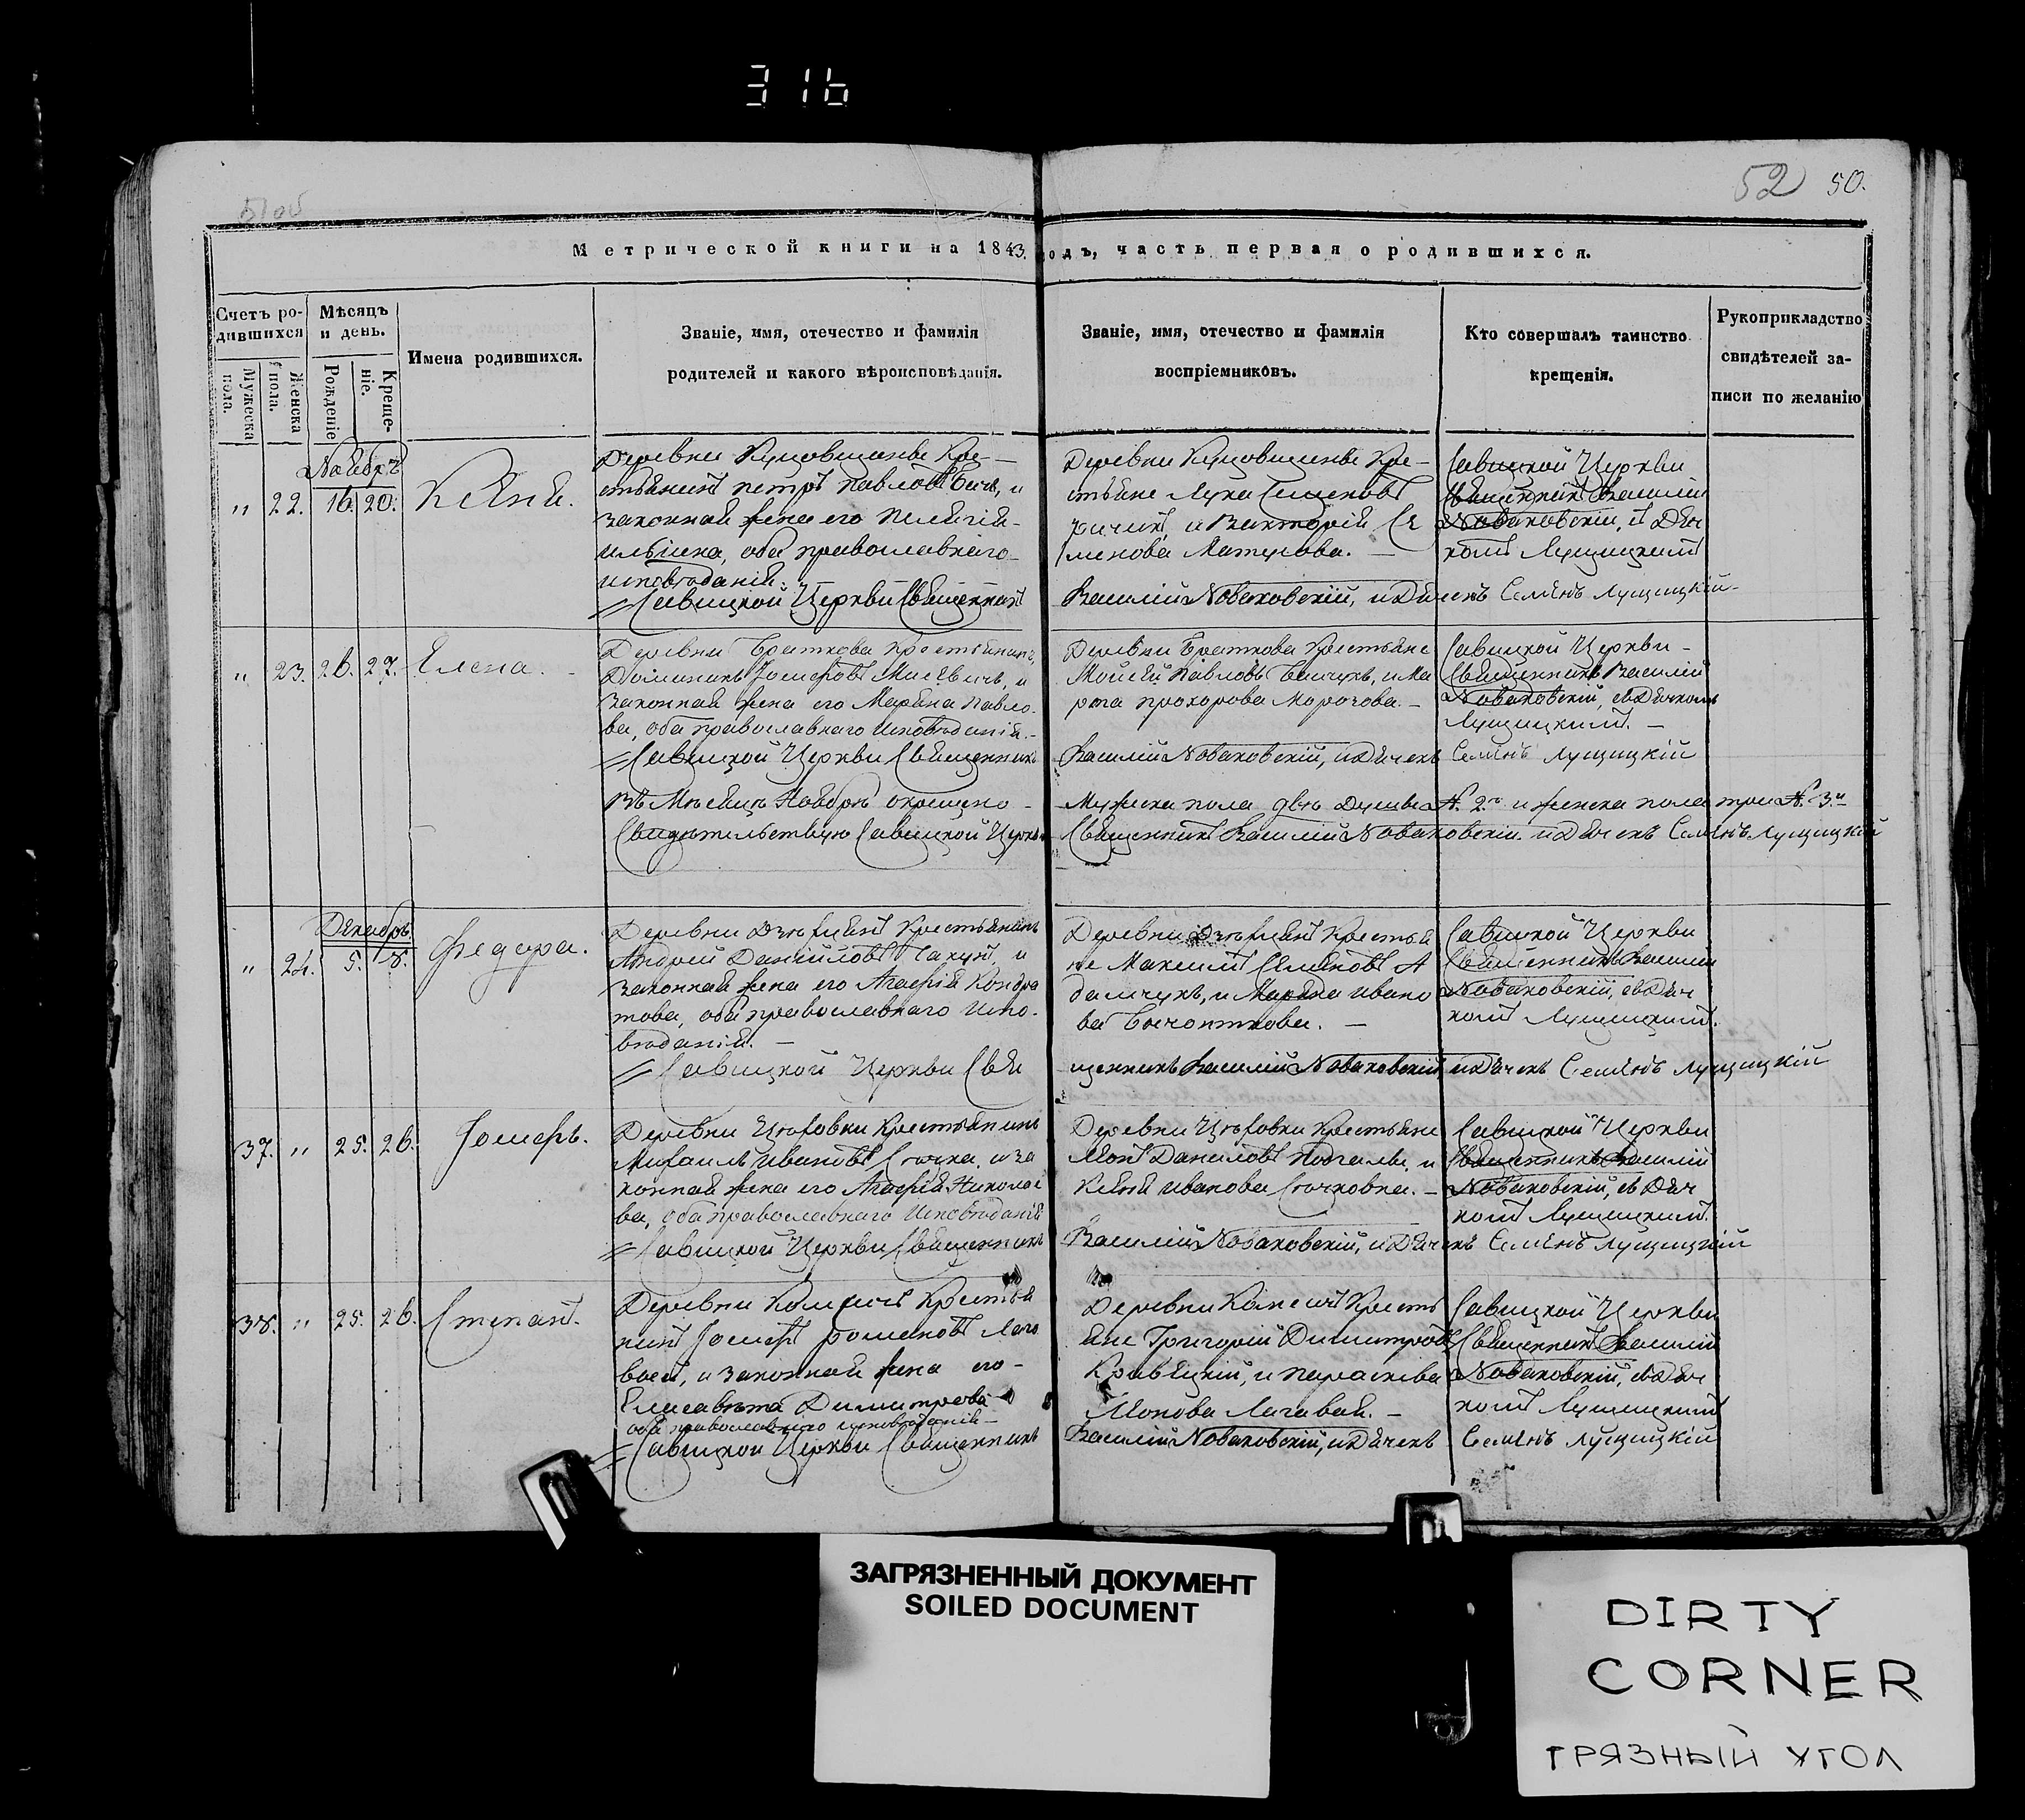 316
52 50.
51 об
Метрической книги на 1843. годъ, часть первая о родившихся.
Счетъ родившихся
Мужеска пола.
Женска пола.
Мѣсяцъ и день.
Рождение
Крещение.
Имена родившихся.
Званіе, имя, отечество и фамилія
родителей и какого вѣроисповѣданія.
Званіе, имя, отечество и фамилія
воспріемниковъ.
Кто совершалъ таинство
крещенія.
Рукоприкладство
свидѣтелей за-
писи по желанію
Ноябрь
„ 22. 16. 20. Ксенія.
Деревни Кре-
стьянинъ Петръ Павловъ и
законная жена его Пелагія
оба православнаго
исповѣданія.
Деревни Кре-
стьяне Лука
и Викторія Се
менова
Савицкой Церкви
Священникъ Василій
Новаковскій, съ Дьяч
комъ Лущицкимъ
Савицкой Церкви Священникъ Василій Новаковскій, и Дьячекъ Семенъ Лущицкій
„ 23. 26. 27. Елена.
Деревни Браткова Крестьянинъ
Доминикъ Іосифовъ и
законная жена его Марина Павло
ва, оба православнаго исповѣданія.
Деревни Браткова Крестьяне
Моисей Павловъ и Ма
рта Прохорова Морозова.
Савицкой Церкви
Священникъ Василій
Новаковскій, съ Дьячкомъ
Лущицкимъ.
Савицкой Церкви Священникъ Василій Новаковскій, и Дьячекъ Семенъ Лущицкій
Въ Мѣсяцѣ Ноябрѣ окрещено Мужеска пола двѣ Души № 2. и женска пола три № 3.
Свидѣтельствую Савицкой Церкви Священникъ Василій Новаковскій и Дьячекъ Семенъ Лущицкій
Декабрь
„ 24. 5. 8. Федора.
Деревни Крестьянинъ
Андрей Даниловъ и
законная жена его Агафія Кондра
това, оба православнаго испо
вѣданія.
Деревни Крестья
не Максимъ Семеновъ А
дамчукъ, и Марина Ивано
ва
Савицкой Церкви
Священникъ Василій
Новаковскій, съ Дьяч
комъ Лущицкимъ.
Савицкой Церкви Свя щенникъ Василій Новаковскій и Дьячекъ Семенъ Лущицкій
37. „ 25. 26. Іосифъ.
Деревни Крестьянинъ
Михаилъ Ивановъ и за
конная жена его Агафія Николае
ва, оба православнаго исповѣданія
Деревни Крестьяне
Даниловъ и
Ксенія Иванова
Савицкой Церкви
Священникъ Василій
Новаковскій, съ Дьяч
комъ Лущицкимъ.
Савицкой Церкви Священникъ Василій Новаковскій, и Дьячекъ Семенъ Лущицкій
38. „ 25. 26. Степанъ.
Деревни Крестья
нинъ Іосифъ Романовъ
и законная жена его
Елисавета Димитрова
оба православнаго исповѣданія
Деревни Кресть
яне Григорій Димитровъ
и Параскева
Савицкой Церкви
Священникъ Василій
Новаковскій, съ Дьяч
комъ Лущицкимъ
Савицкой Церкви Священникъ Василій Новаковскій, и Дьячекъ Семенъ Лущицкій
ЗАГРЯЗНЕННЫЙ ДОКУМЕНТ
SOILED DOCUMENT
DIRTY
CORNER
ГРЯЗНЫЙ УГОЛ